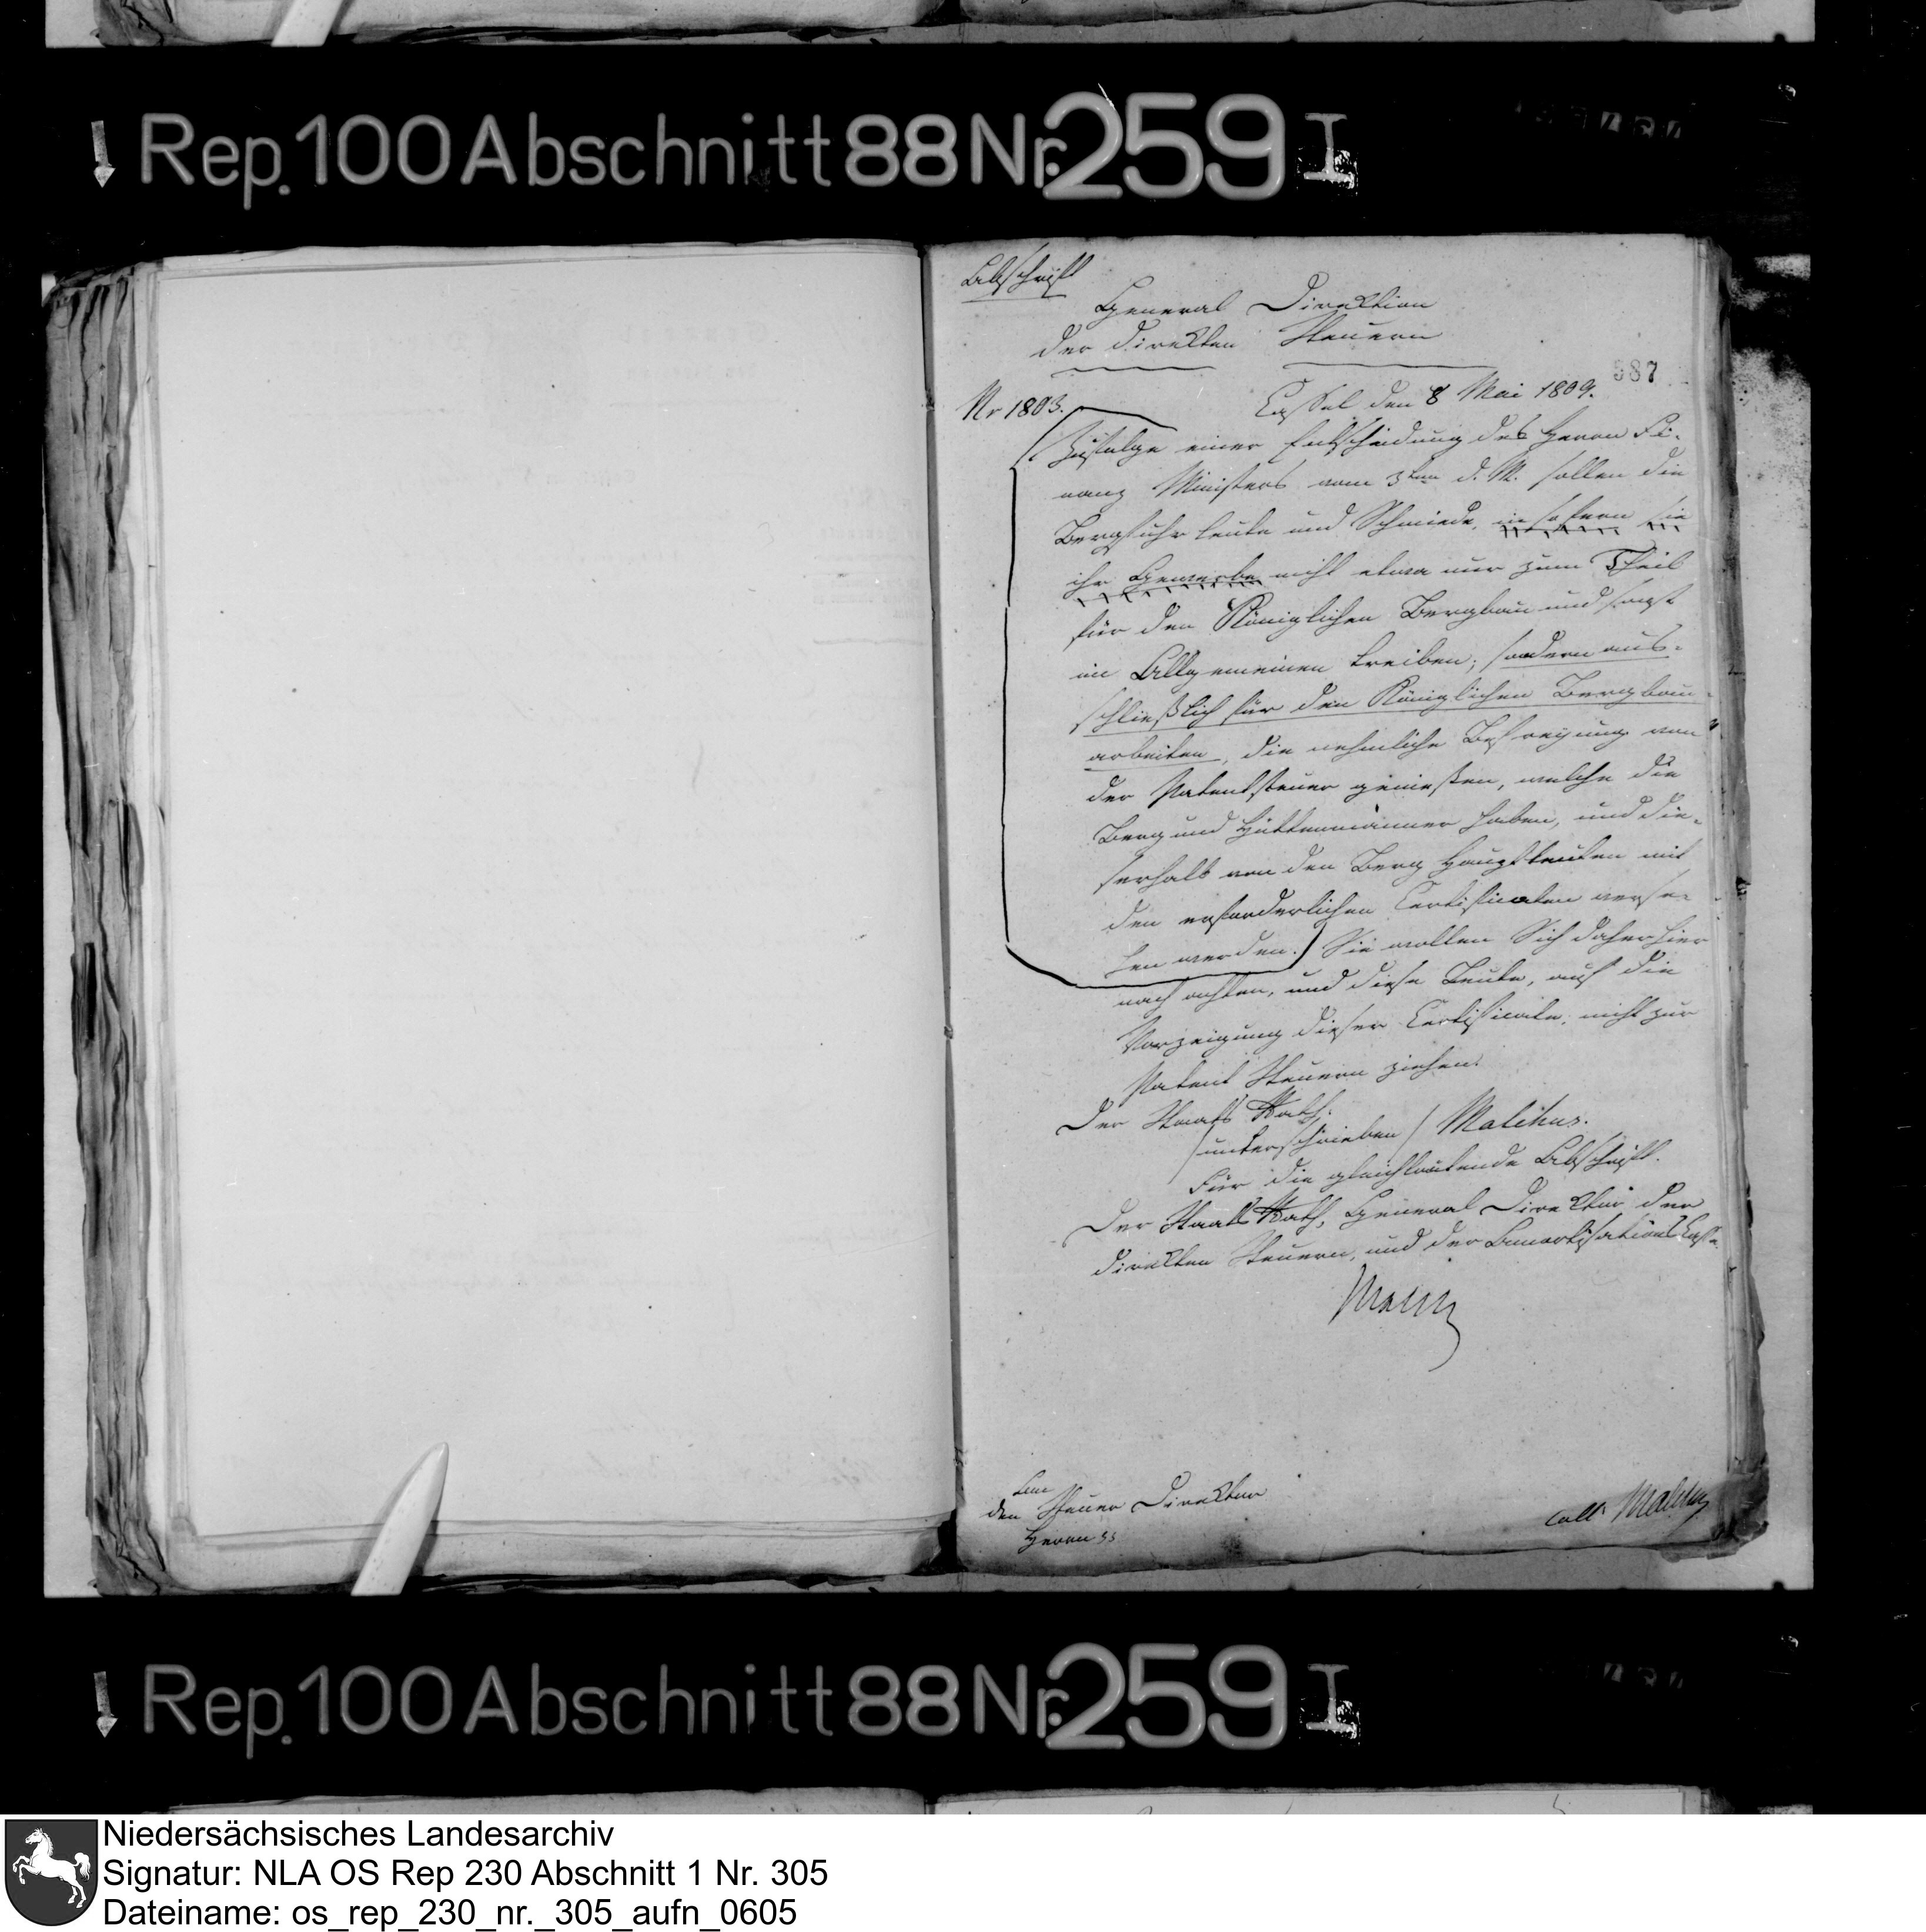 Rep. 100 Abschnitt 88 Nr. 259 I
Abschrift
General Direktion
der direkten Steuern
387
Nr 1803.
Cassel den 8 Mai 1809.
Zufolge einer Entscheidung des Herrn Fi-
nanz Ministers vom 3ten d. M. sollen die
Bergfuhrleute und Schmiede, in sofern sie
ihr Gewerbe nicht etwa nur zum Theil
für den Königlichen Bergbau und sonst
im Allgemeinen treiben, sondern aus-
schließlich für den Königlichen Bergbau
arbeiten, die nehmliche Befreyung von
der Patentsteuer genießen, welche die
Berg und Hüttenmänner haben, und die-
serhalb von den Berg Hauptleuten mit
den erforderlichen Certificaten verse-
hen werden. Sie wollen Sich daher hier
nach achten, und diese Leute, auf die
Vorzeigung dieser Certificate, nicht zur
Patent Steuern ziehen.
Der Staats Rath,
/unterschrieben/ Malchus.
Für die gleichlautende Abschrift.
Der Staats Rath, General Direktor der
direkten Steuern, und der Amortisations Casse
An
den Steuer Direktor
Herrn
coll. Malchus
Rep. 100 Abschnitt 88 Nr. 259 I
Niedersächsisches Landesarchiv
Signatur: NLA OS Rep 230 Abschnitt 1 Nr. 305
Dateiname: os_rep_230_nr._305_aufn_0605